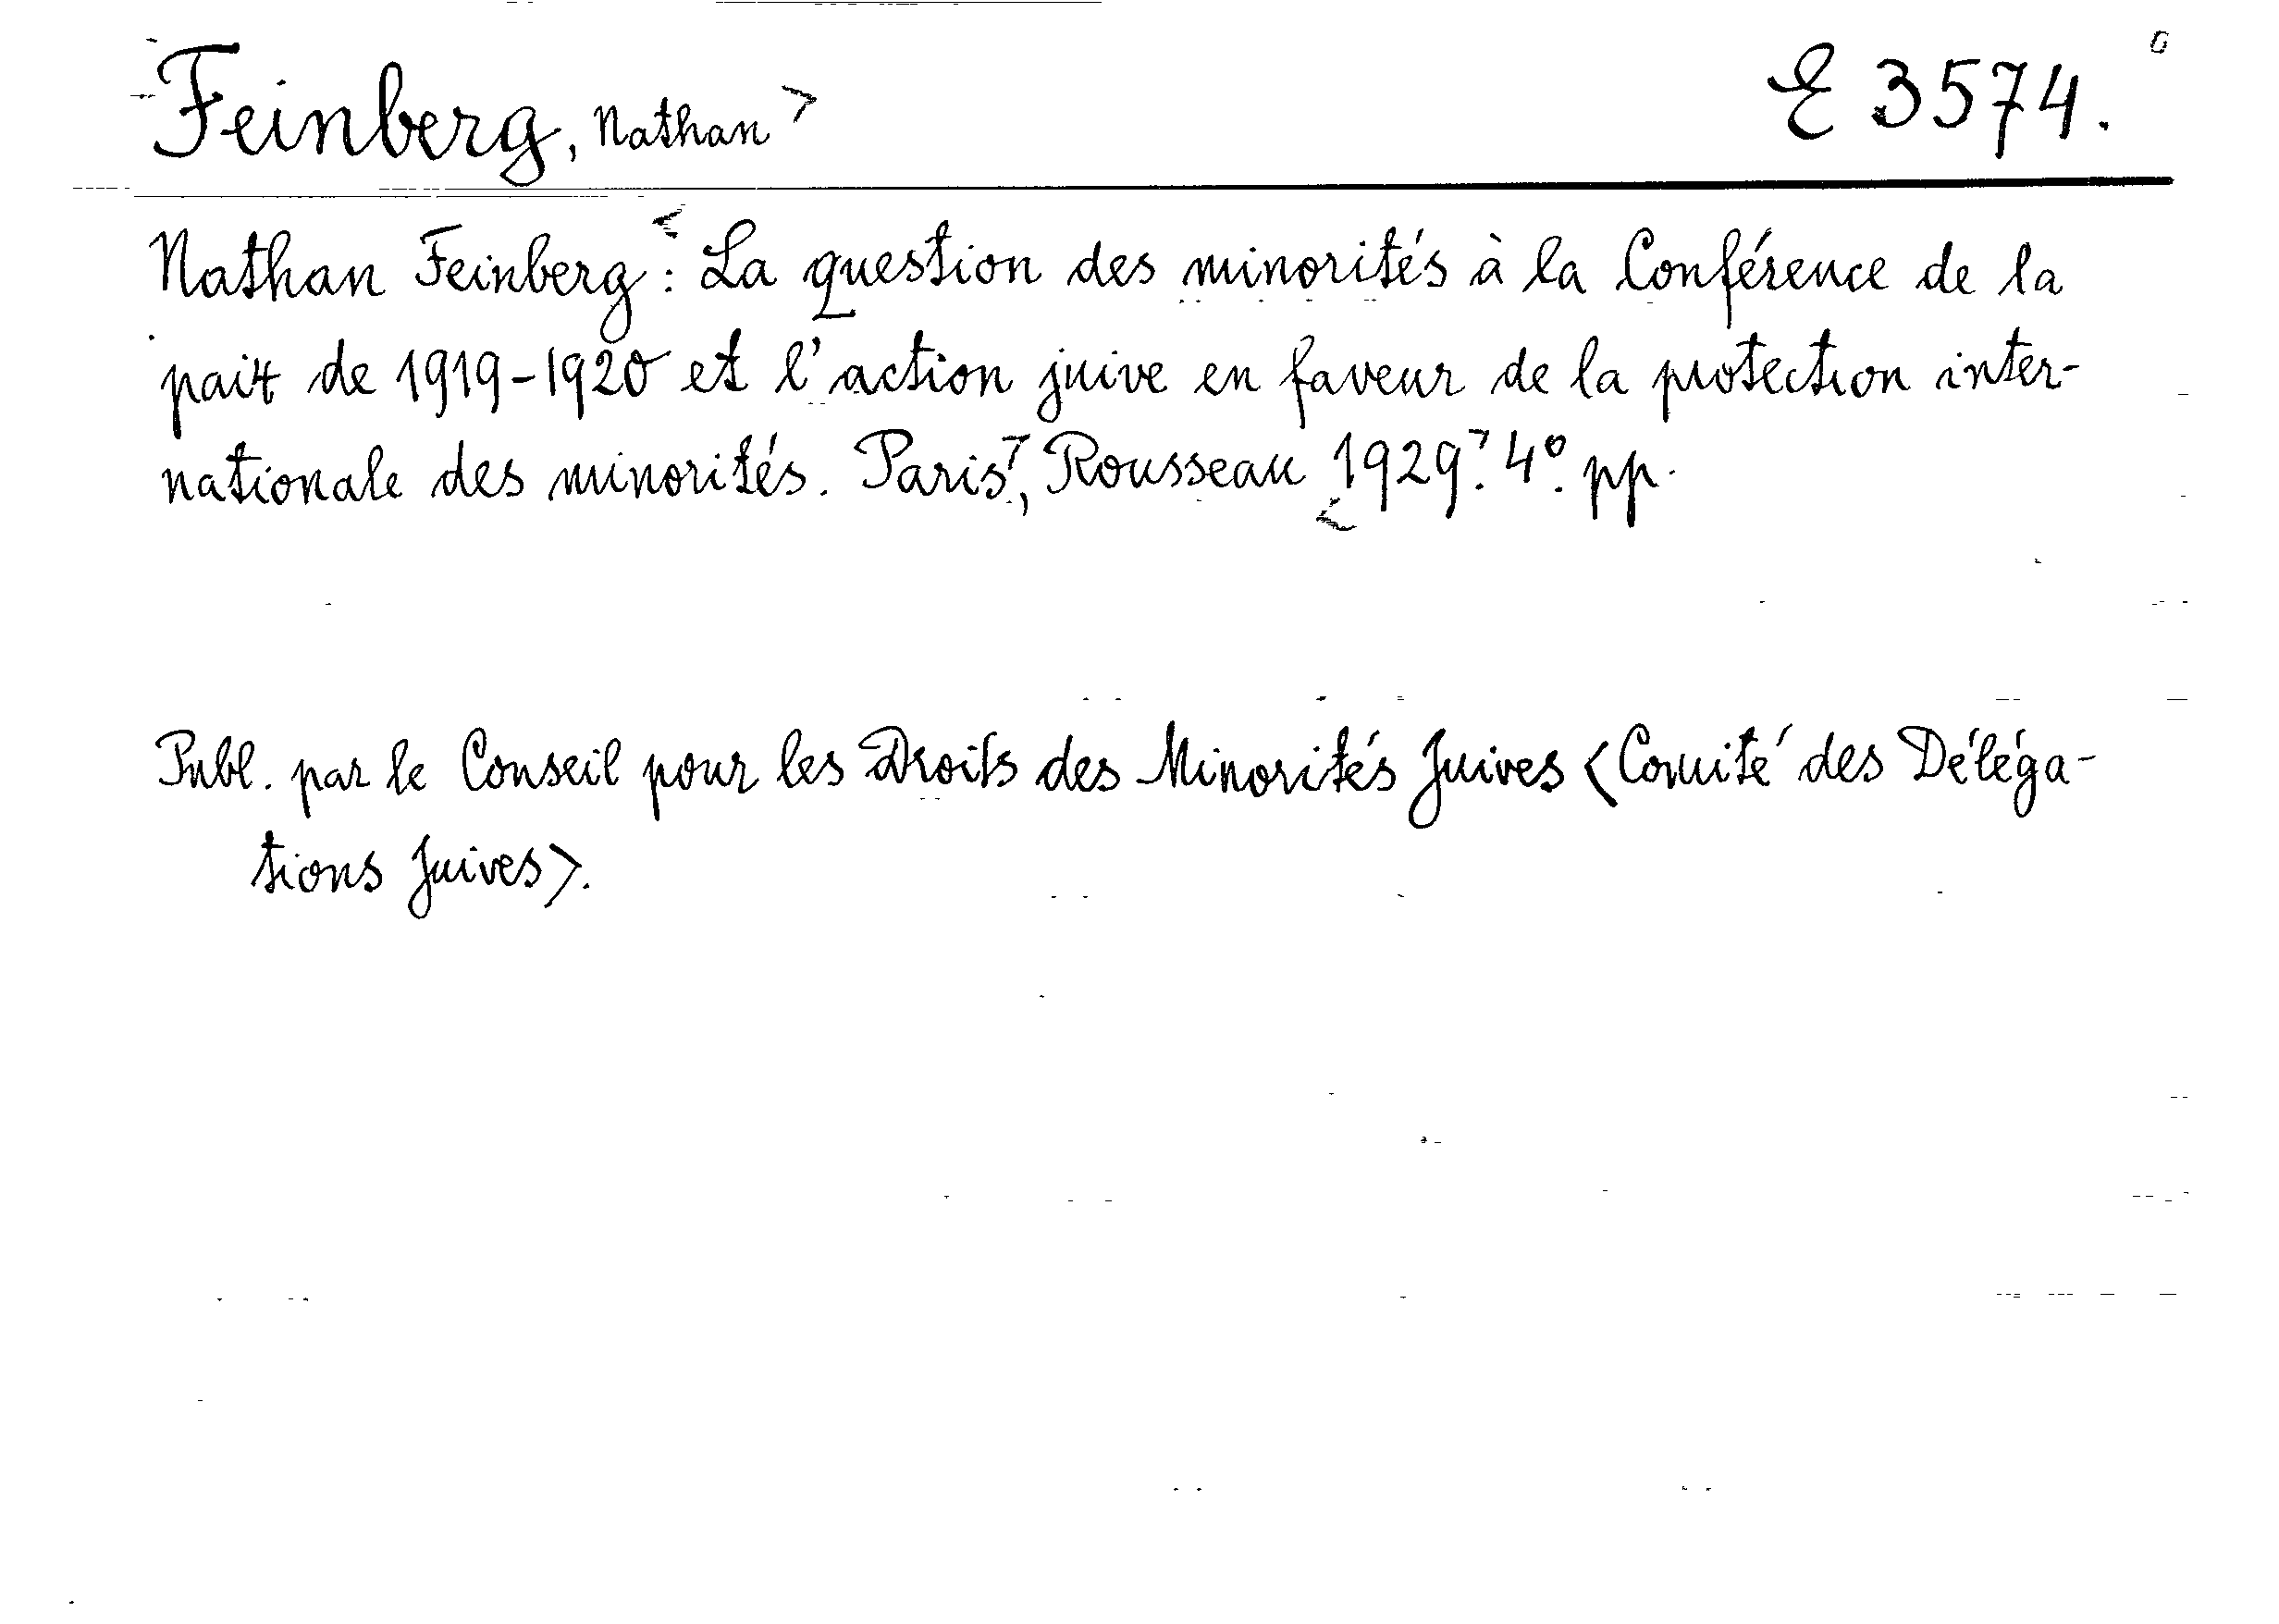 Feinberg, Nathan E 3574.
Nathan Feinberg: La question des minorités à la Conférence de la
paix de 1919-1920 et l'action juive en faveur de la protection inter-
nationale des minorités. Paris, Rousseau 1929. 4°. pp.
Publ. par le Conseil pour les Droits des Minorités Juives <Comité des Déléga-
tions Juives>.